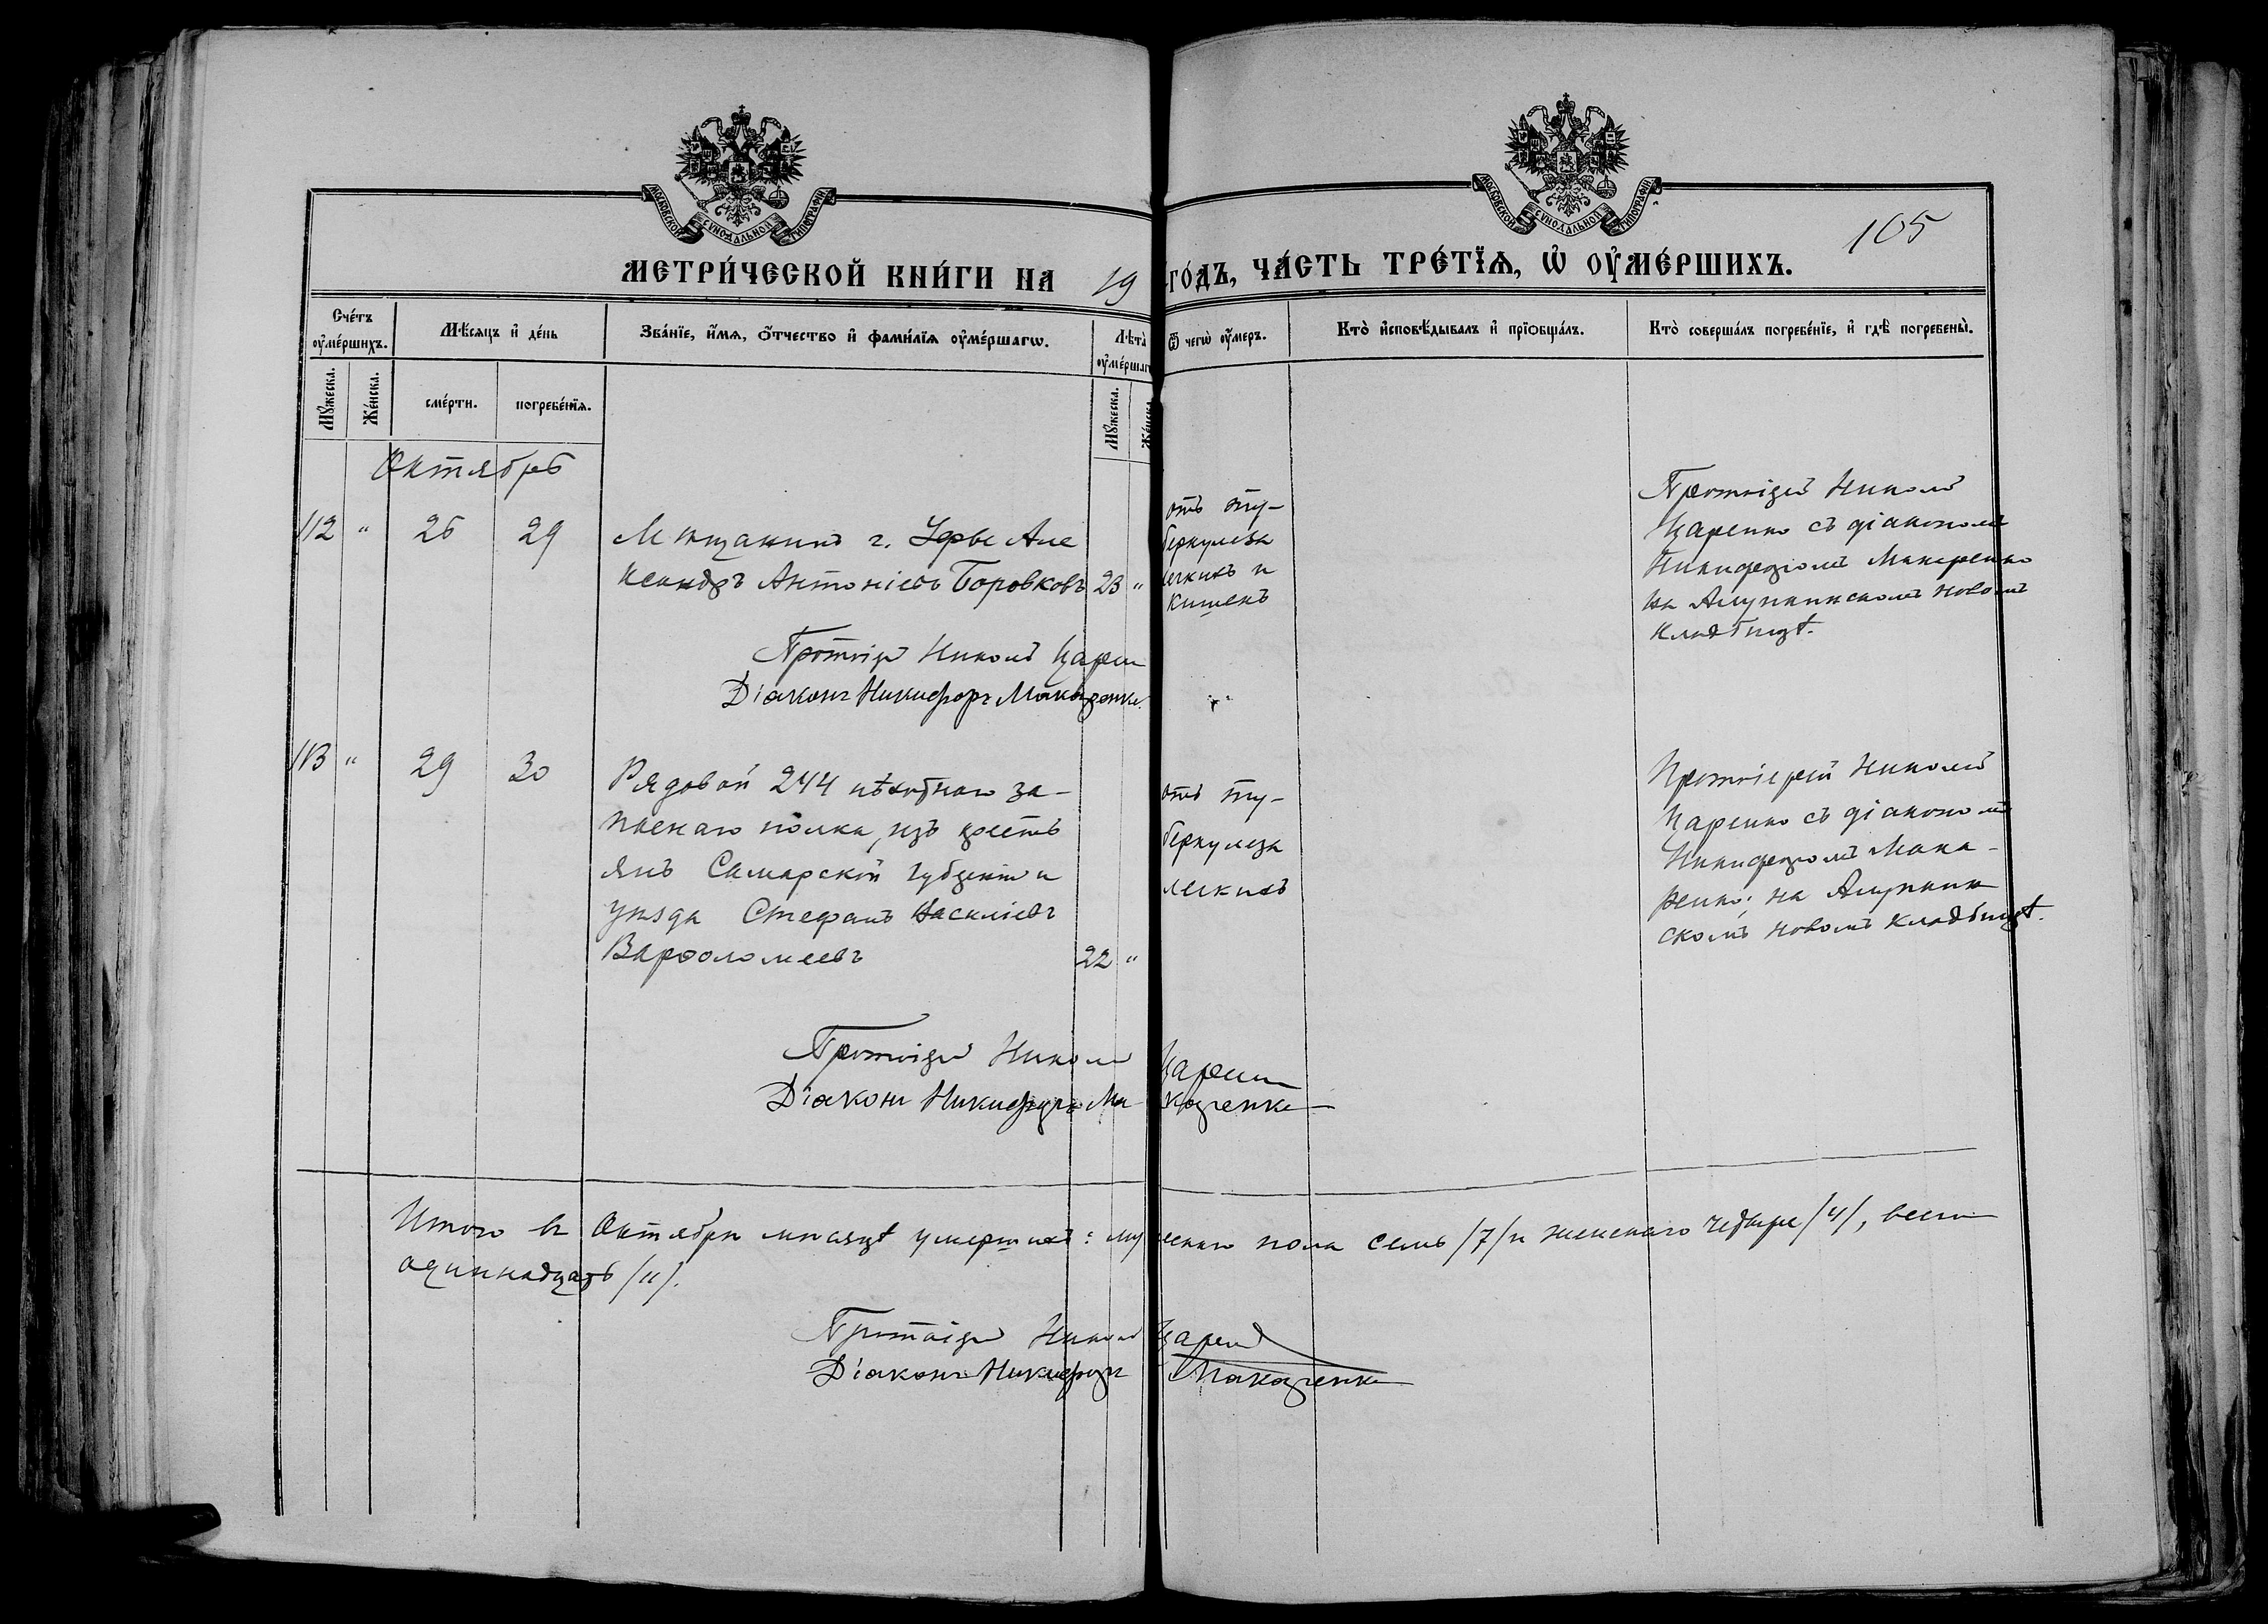 МОСКОВСКОЙ СѴНОДАЛЬНОЙ ТИПОГРАФІИ
МОСКОВСКОЙ СѴНОДАЛЬНОЙ ТИПОГРАФІИ
105
МЕТРИ́ЧЕСКОЙ КНИ́ГИ НА 19 ГО́ДЪ, ЧА́СТЬ ТРЕ́ТЇѦ, Ѡ҆ ОУ҆МЕ́РШИХЪ.
Сче́тъ оу҆ме́ршихъ.
Мѣ́сѧцъ и҆ де́нь
Зва́нїе, и҆́мѧ, ѻ҆́тчество и҆ фами́лїѧ оу҆ме́ршагѡ.
Лѣ́та оу҆ме́ршаг
Ѿ чегѡ̀ оу҆́меръ.
Кто̀ и҆сповѣ́дывалъ и҆ прїѡбща́лъ.
Кто̀ соверша́лъ погребе́нїе, и҆ гдѣ̀ погребены̀.
Мꙋ́жеска.
Же́нска.
сме́рти.
погребе́нїѧ.
Мꙋ́жеска.
Же́нска
Октябрь
112 " 26 29
Мѣщанинъ г. Уфы Але
ксандръ Антоніевъ Боровковъ 23 "
отъ ту-
беркулеза
легкихъ и
кишекъ
Протоіерей Николай
Царенко съ діакономъ
Никифоромъ Макаренко
на Алупкинскомъ новомъ
кладбищѣ.
Протоіерей Николай Царенко
Діаконъ Никифоръ Макаренко.
113 " 29 30
Рядовой 244 пѣхотнаго за-
паснаго полка, изъ кресть
янъ Самарской губерніи и
уѣзда Стефанъ Василіевъ
Варѳоломеевъ 22 "
отъ ту-
беркулеза
легкихъ
Протоіерей Николай
Царенко съ діакономъ
Никифоромъ Мака-
ренко; на Алупкин
скомъ новомъ кладбищѣ.
Протоіерей Николай Царенко
Діаконъ Никифоръ Макаренко
Итого въ Октябрѣ мѣсяцѣ умершихъ: мужескаго пола семь /7/ и женскаго четыре /4/, всего
одиннадцать /11/.
Протоіерей Николай Царенко
Діаконъ Никифоръ Макаренко